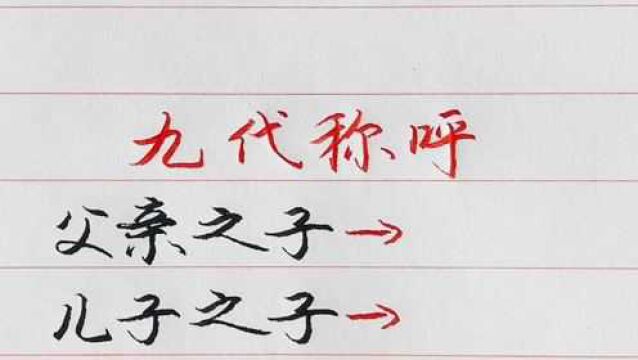 九代称呼
父亲之子→
儿子之子→